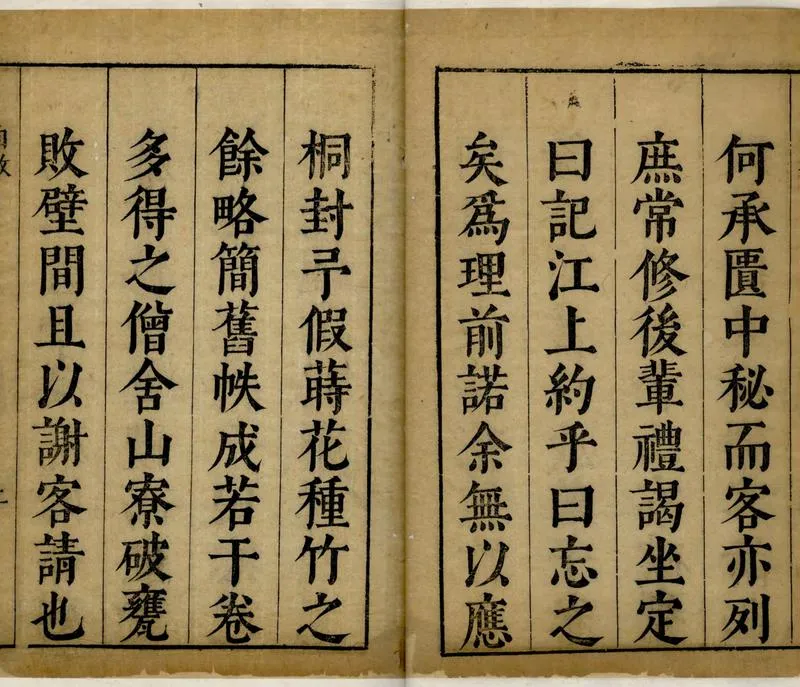 何承匱中秘而客亦列
庶常修後輩禮謁坐定
曰記江上約乎曰忘之
矣爲理前諾余無以應
桐封予假蒔花種竹之
餘略簡舊帙成若干卷
多得之僧舍山寮破甕
敗壁間且以謝客請也